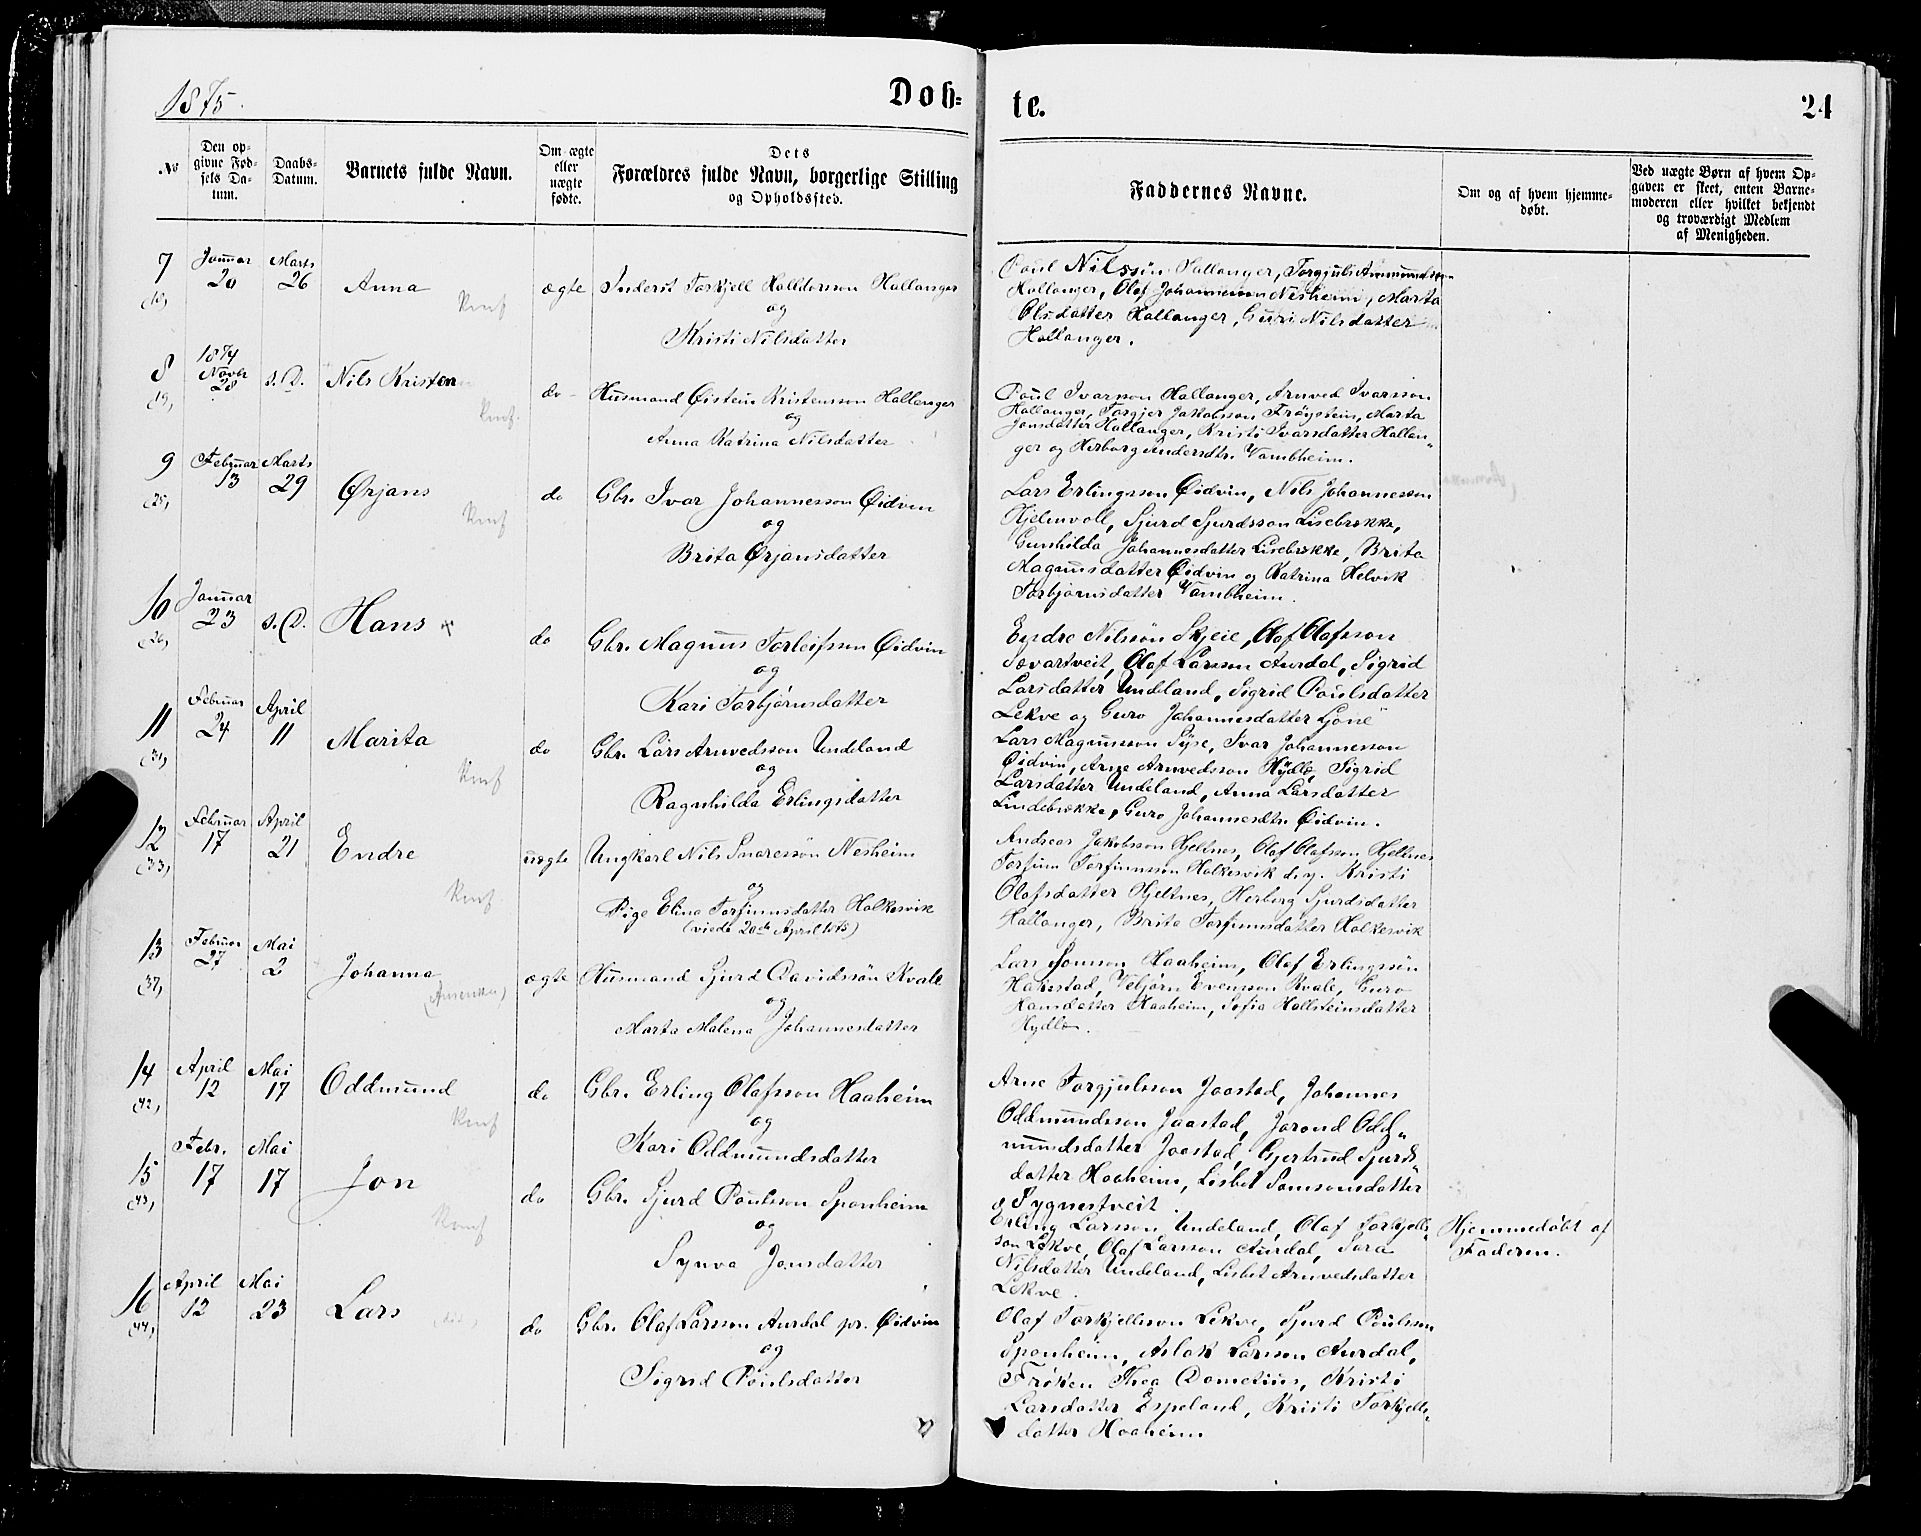 1875.
Døb-
te.
24
No
Den op-
givne Fød-
sels Da-
tum.
Daabs-
Datum.
Barnets fulde Navn.
Om ægte
eller
uægte
fødte.
Dets
Forældres fulde Navn, borgerlige Stilling
og Opholdssted.
Faddernes Navne.
Om og af hvem hjemme-
døbt.
Ved uægte Børn af hvem Op-
gaven er skeet, enten Barne-
moderen eller hvilket bekjendt
og troværdigt Medlem
af Menigheden.
7
Januar
20
Marts
26
Anna
Knf
ægte
Inderst Torkjell Halldorson Hallanger
og
Kristi Nilsdatter
Poul Nilssön Hallanger, Torgjuls Ammundson
Hallanger, Olaf Johannesson Nesheim, Marta
Olsdatter Hallanger, Guri Nilsdatter
Hallanger.
8
(19)
1874
Novbr
28
s. D.
Nils Kristen
Knf.
do
Husmand Øistein Kristensson Hallanger
og
Anna Katrina Nilsdatter
Poul Ivarson Hallanger, Arnved Ivarsson
Hallanger, Torgjer Jakobsson Frøystein, Marta
Jonsdatter Hallanger, Kristi Ivarsdatter Hallan-
ger og Herborg Andersdtr. Vambheim.
9
(25)
Februar
13
Marts
29
Ørjans
Knf
do
Gbr. Ivar Johannesson Øidvin
og
Brita Ørjansdatter
Lars Erlingsson Øidvin, Nils Johannesson
Hjelmvoll, Sjurd Sjurdsson Lisebrække,
Gunhilda Johannesdatter Lisebrække, Brita
Magnusdatter Øidvin og Katrina Helvik
Torbjørnsdatter Vambheim.
10
(26)
Januar
23
s. D.
Hans
do
Gbr. Magnus Torleifsson Øidvin
og
Kari Torbjörnsdatter
Endre Nilssön Skjeie, Olaf Olafsson
Tevartveit, Olaf Larsson Aurdal, Sigrid
Larsdatter Undeland, Sigrid Poulsdatter
Lekve og Guro Johannesdatter Ljone
11
(31)
Februar
24
April
11
Marita
Knf
do
Gbr. Lars Arnvedsson Undeland
og
Ragnhilda Erlingsdatter
Lars Magnusson Syse, Ivar Johannesson
Øidvin, Arne Arnvedsson Hydle, Sigrid
Larsdatter Undeland, Anna Larsdatter
Lindebrække, Guro Johannesdtr. Øidvin.
12
(33)
Februar
17
April
21
Endre
Knf
uægte
Ungkarl Nils Snaressön Nesheim
og
Pige Elina Torfinnsdatter Holkesvik
(viede 20de April 1875)
Andreas Jakobsson Hjeltnes, Olaf Olafsson Hjeltnes
Torfinn Torfinnsson Holkesvik d. y. Kristi
Olafsdatter Hjeltnes, Herborg Sjurdsdatter
Hallanger, Brita Torfinnsdatter Holkesvik
13
(37)
Februar
27
Mai
2
Johanna
(Amerika)
ægte
Husmand Sjurd Davidssön Kvale
og
Marta Malena Johannesdatter
Lars Jonson Haaheim, Olaf Erlingssön
Hakestad, Vebjörn Evensson Kvale, Guro
Hansdatter Haaheim, Sofia Hallsteinsdatter
Hydle.
14
(42)
April
12
Mai
17
Oddmund
Knf
do
Gbr. Erling Olafsson Haaheim
og
Kari Oddmundsdatter
Arne Torgjulsson Jaastad, Johannes
Oddmundsson Jaastad, Jorond Odd-
mundsdatter Jaastad, Gjertrud Sjurds-
datter Haaheim, Lisbet Samsonsdatter
Sygnestveit
15
(43)
Febr.
17
Mai
17
Jon
Konf
do
Gbr. Sjurd Poulsson Sponheim
og
Synva Jonsdatter
Erling Larsson Undeland, Olaf Torkjells-
son Lekve, Olaf Larsson Aurdal, Sara
Nilsdatter Undeland, Lisbet Arnvedsdatter
Lekve.
Hjemmedöbt af
Faderen.
16
(44)
April
12
Mai
23
Lars
do
Gbr. Olaf Larsson Aurdal pr. Øidvin
og
Sigrid Poulsdatter
Olaf Torkjellsson Lekve, Sjurd Poulsson
Sponheim, Aslak Larsson Aurdal,
Frøken Thea Dometius, Kristi
Larsdatter Espeland, Kristi Torkjells-
datter Haaheim